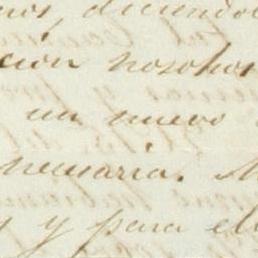 diciendo
ción nosotros
un nuevo
necesaria.
y para el